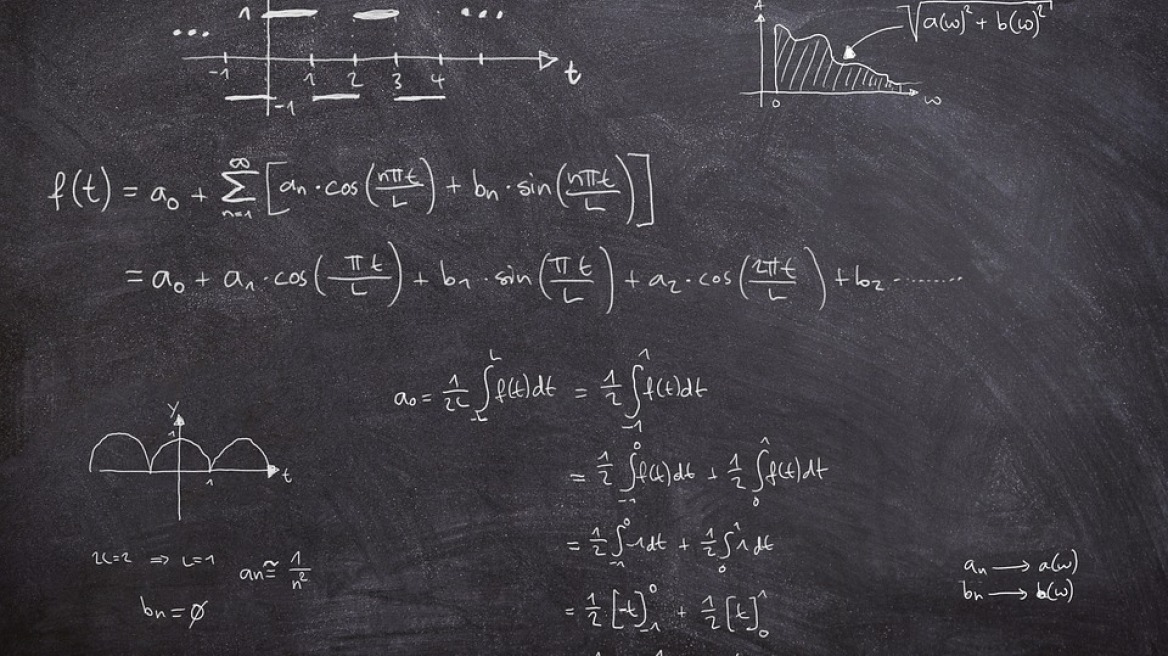 1 ...
...
-1 1 2 3 4 t
-1
√(a(ω)² + b(ω)²)
0 ω
f(t) = a₀ + ∑ₙ₌₁^∞ [aₙ · cos(nπt/L) + bₙ · sin(nπt/L)]
= a₀ + a₁ · cos(πt/L) + b₁ · sin(πt/L) + a₂ · cos(2πt/L) + b₂ ........
a₀ = 1/2L ∫₋L^L f(t)dt = 1/2 ∫₋₁^1 f(t)dt
= 1/2 ∫₋₁^0 f(t)dt + 1/2 ∫₀^1 f(t)dt
= 1/2 ∫₋₁^0 -1dt + 1/2 ∫₀^1 1dt
= 1/2 [-t]₋₁^0 + 1/2 [t]₀^1
y
1
1 t
2L=2 ⇒ L=1 aₙ ≅ 1/n²
bₙ = ∅
aₙ → a(ω)
bₙ → b(ω)